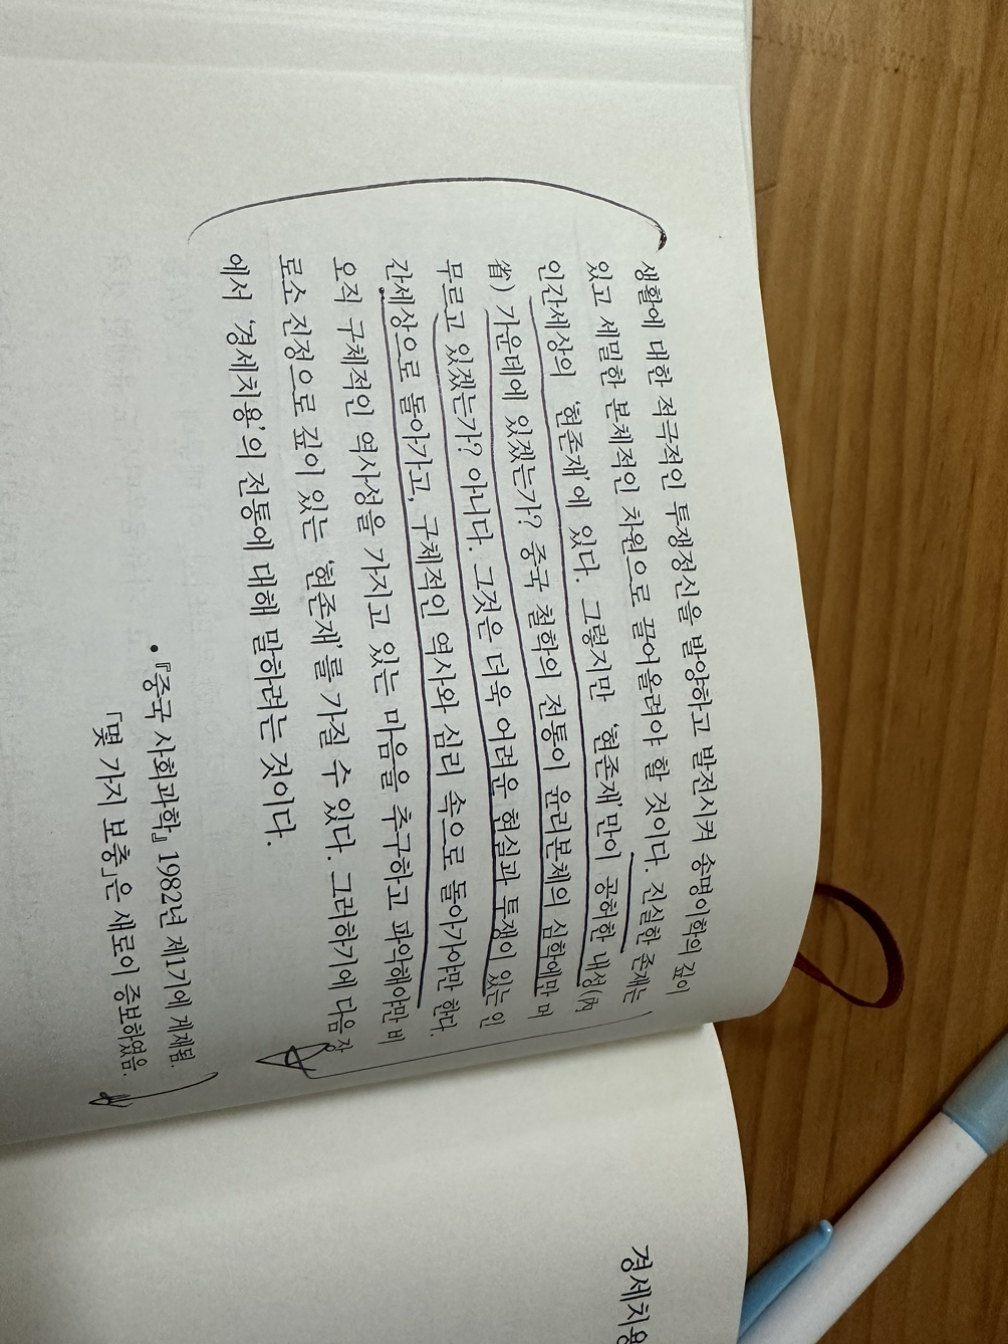 생활에 대한 적극적인 투쟁정신을 발양하고 발전시켜 송명이학의 깊이
있고 세밀한 본체적인 차원으로 끌어올려야 할 것이다. 진실한 존재는
인간세상의 '현존재'에 있다. 그렇지만 '현존재'만이 공허한 내성(內
省) 가운데에 있겠는가? 중국 철학의 전통이 윤리본체의 심학에만 머
무르고 있겠는가? 아니다. 그것은 더욱 어려운 현실과 투쟁이 있는 인
간세상으로 돌아가고, 구체적인 역사와 심리 속으로 돌아가야만 한다.
오직 구체적인 역사성을 가지고 있는 마음을 추구하고 파악해야만 비
로소 진정으로 깊이 있는 '현존재'를 가질 수 있다. 그러하기에 다음 장
에서 '경세치용'의 전통에 대해 말하려는 것이다.
• 『중국 사회과학』 1982년 제1기에 게재됨.
「몇 가지 보충」은 새로이 증보하였음.
경세치용